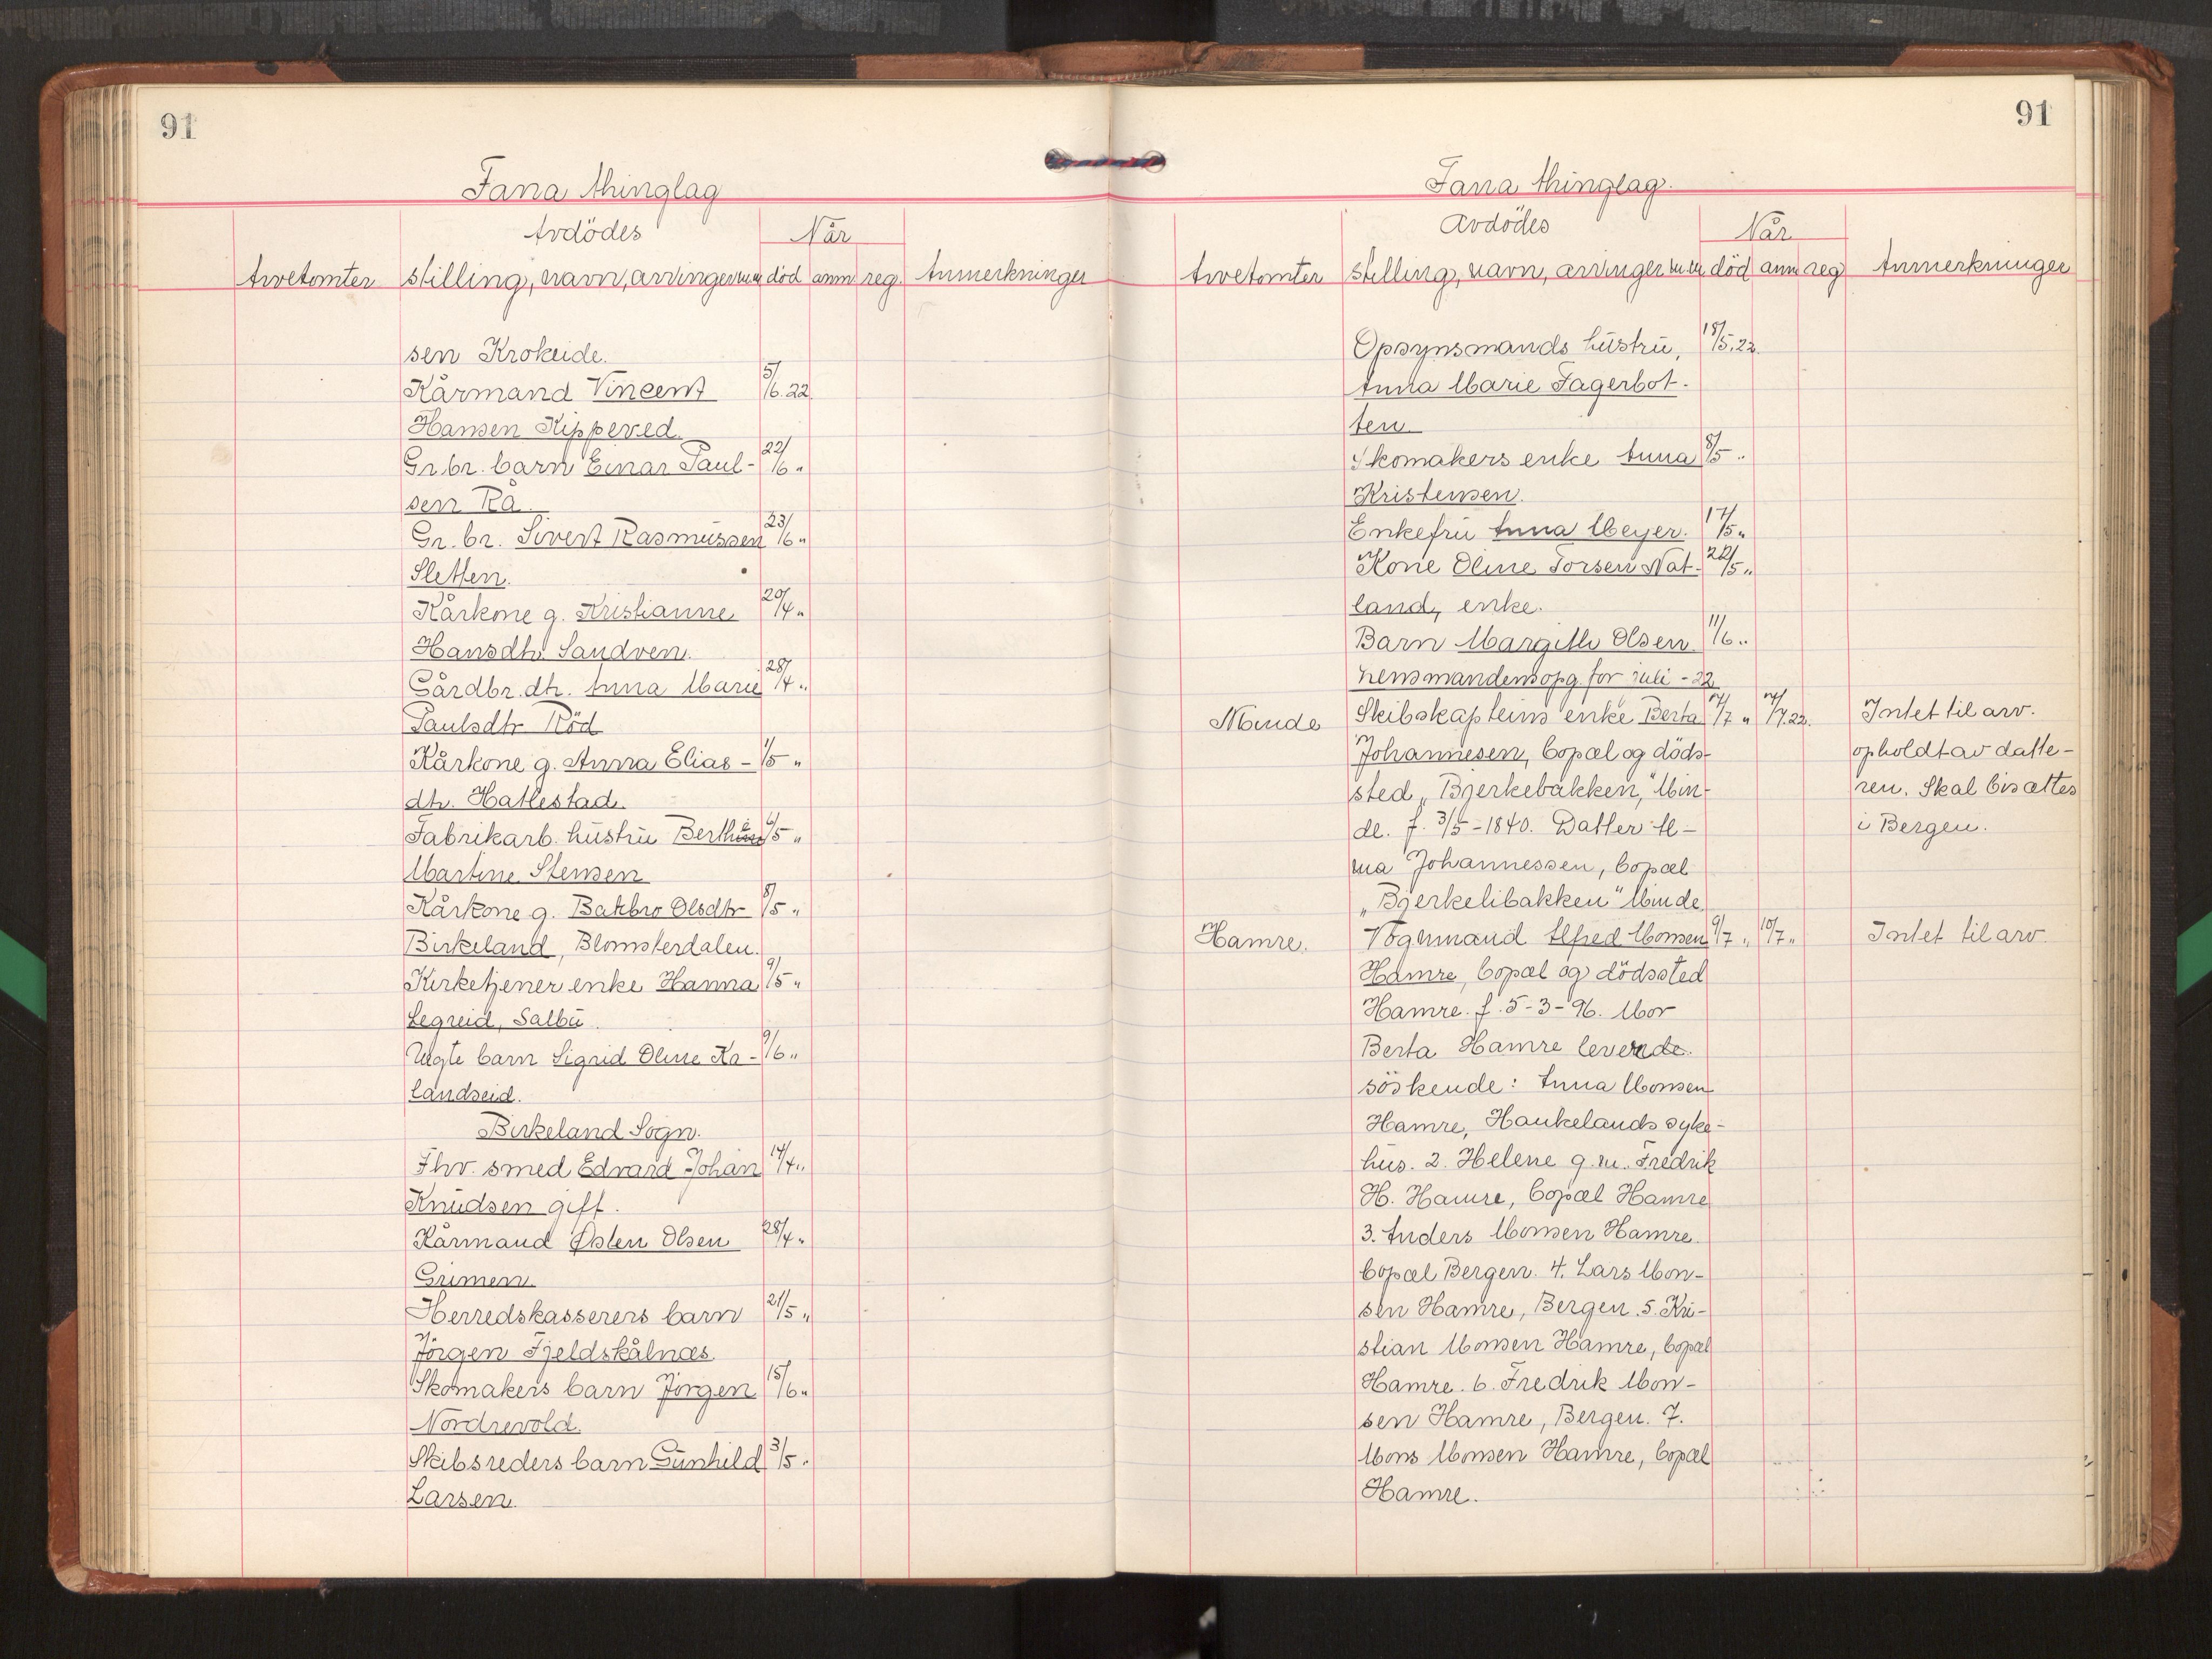 91
Fana thinglag
Avdödes
Når
Arvetomter stilling, navn, arvinger m.m. död anm reg. Anmerkninger
sen Krokeide.
Kårmand Vincent 5/6.22.
Hansen Kippeved.
Gr.br. barn Einar Paul- 22/6 "
sen Rå.
Gr. br. Sivert Rasmussen 23/6 "
Sletten.
Kårkone g. Kristianne 20/4 "
Hansdtr. Sandven.
Gårdbr. dtr. Anna Marie 28/4 "
Paulsdtr Röd
Kårkone g. Anna Elias- 1/5 "
dtr. Hatlestad.
Fabrikarb. hustru 6/5 "
Martine Stensen
Kårkone g. Batbro Olsdtr 8/5 "
Birkeland, Blomsterdalen.
Kirketjener enke Hanna 9/5 "
Legreid, Salbu.
Uegte barn Sigrid Oline Ka- 9/6 "
landseid.
Birkeland Sogn.
Fhv. smed Edvard Johan 14/4 "
Knudsen gift.
Kårmand Østen Olsen 28/4 "
Grimen
Herredskasserers barn 21/5 "
Jörgen Fjeldskålnæs.
Skomakers barn Jörgen 15/6 "
Nordrevold.
Skibsreders barn Gunhild 3/5 "
Larsen.
91
Fana thinglag.
Avdödes
Når
Arvetomter stilling, navn, arvinger m.m. död anm reg Anmerkninger
Opsynsmands hustru, 18/5.22.
Anna Marie Fagerbot-
ten.
Skomakers enke Anna 8/5 "
Kristensen.
Enkefru Anna Meyer. 17/5 "
Kone Oline Torsen Nat- 22/5 "
land, enke.
Barn Margith Olsen. 11/6 "
Lensmandens opg. for juli - 22
Minde Skibskapteins enke Berta 7/7 " 7/7.22. Intet til arv.
Johannesen, bopæl og döds- opholdt av datte-
sted "Bjerkebakken," Min- ren. Skal bisættes
de. f. 3/5-1840. Datter Al- i Bergen.
ma Johannessen, bopæl
"Bjerkelibakken" Minde.
Hamre. Vognmand Alfred Monsen 9/7 " 10/7 " Intet til arv.
Hamre, bopæl og dödssted
Hamre. f. 5-3-96. Mor
Berta Hamre levende.
söskende: Anna Monsen
Hamre, Haukelands syke-
hus. 2. Helene g.m. Fredrik
H. Hamre, bopæl Hamre
3. Anders Monsen Hamre.
bopæl Bergen. 4. Lars Mon-
sen Hamre, Bergen. 5. Kri-
stian Monsen Hamre, bopæl
Hamre. 6. Fredrik Mon-
sen Hamre, Bergen. 7.
Mons Monsen Hamre, bopæl
Hamre.